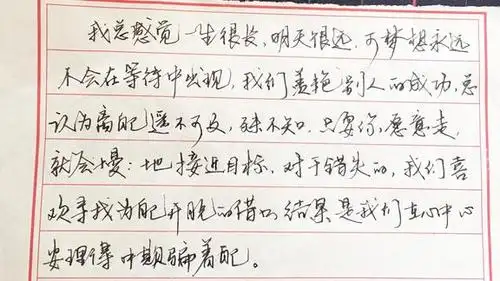 我总感觉一生很长，明天很远，可梦想永远
不会在等待中出现，我们羡艳别人的成功，总
认为离自己遥不可及，殊不知，只要你愿意走，
就会慢慢地接近目标，对于错失的，我们喜
欢寻找为自己开脱的借口，结果是我们在心中心
安理得中欺骗着自己。